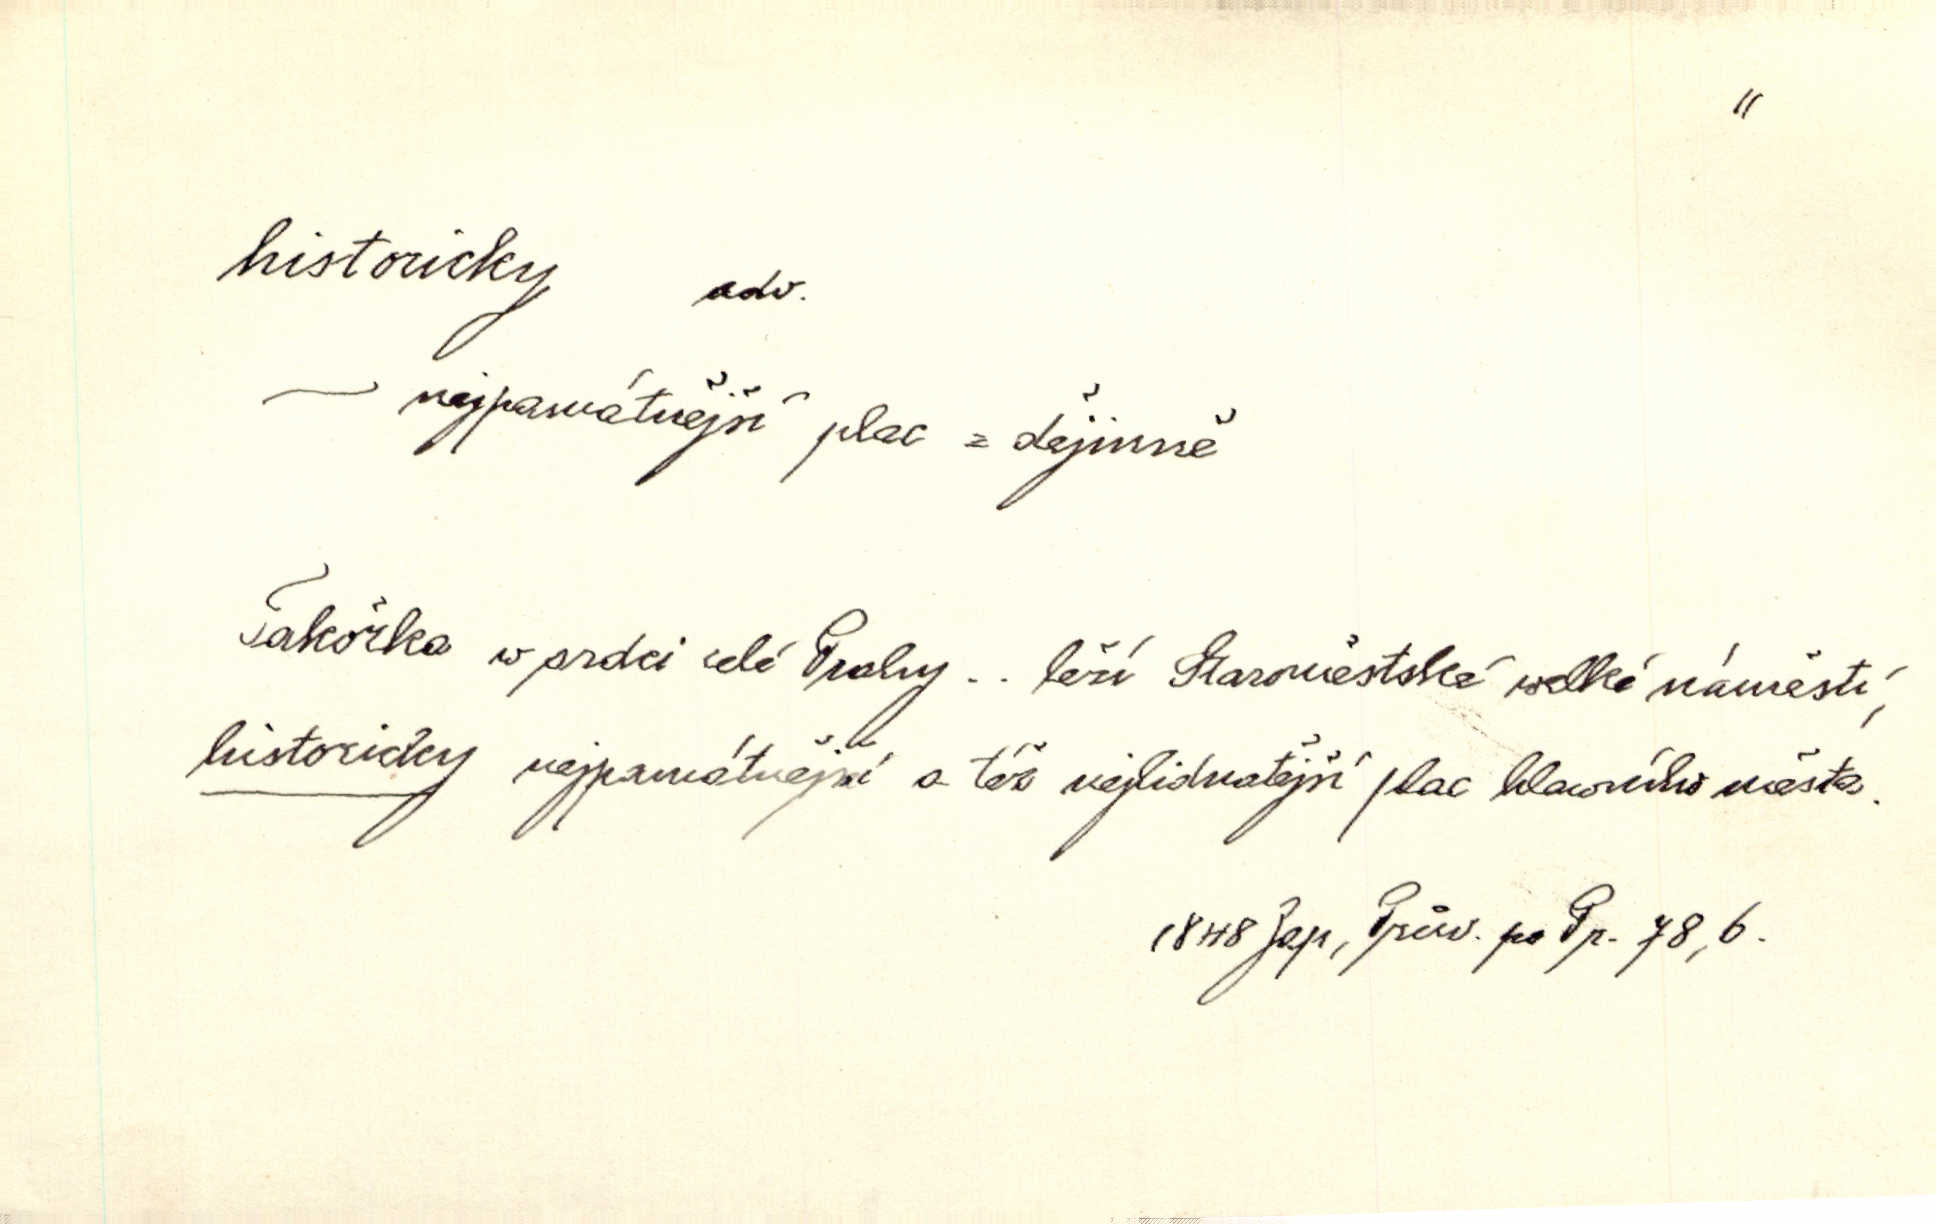 "
historicky adv.
~ nejpamátnější plac = dějinně
Takořka w srdci celé Prahy .. leží Staroměstské welké náměstí,
historicky nejpamátnější a též nejlidnatější plac hlawního města.
1848 Zap, Průw. po Pr. 78, 6.